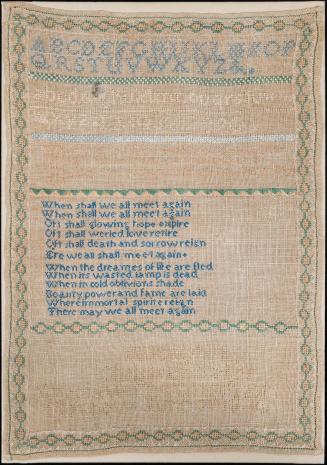 ABCDEFGHIJKLMNOP
QRSTUVWXYZ&.
When shall we all meet again
When shall we all meet again
Oft shall glowing hope expire
Oft shall weried love retire
Oft shall death and sorrow reign
Ere we all shall meet again
When the dreames of life are fled
When its wasted lamp is dead
When in cold oblivions shade
Beauty power and fame are laid
Where immortal spirits reign
There may we all meet again